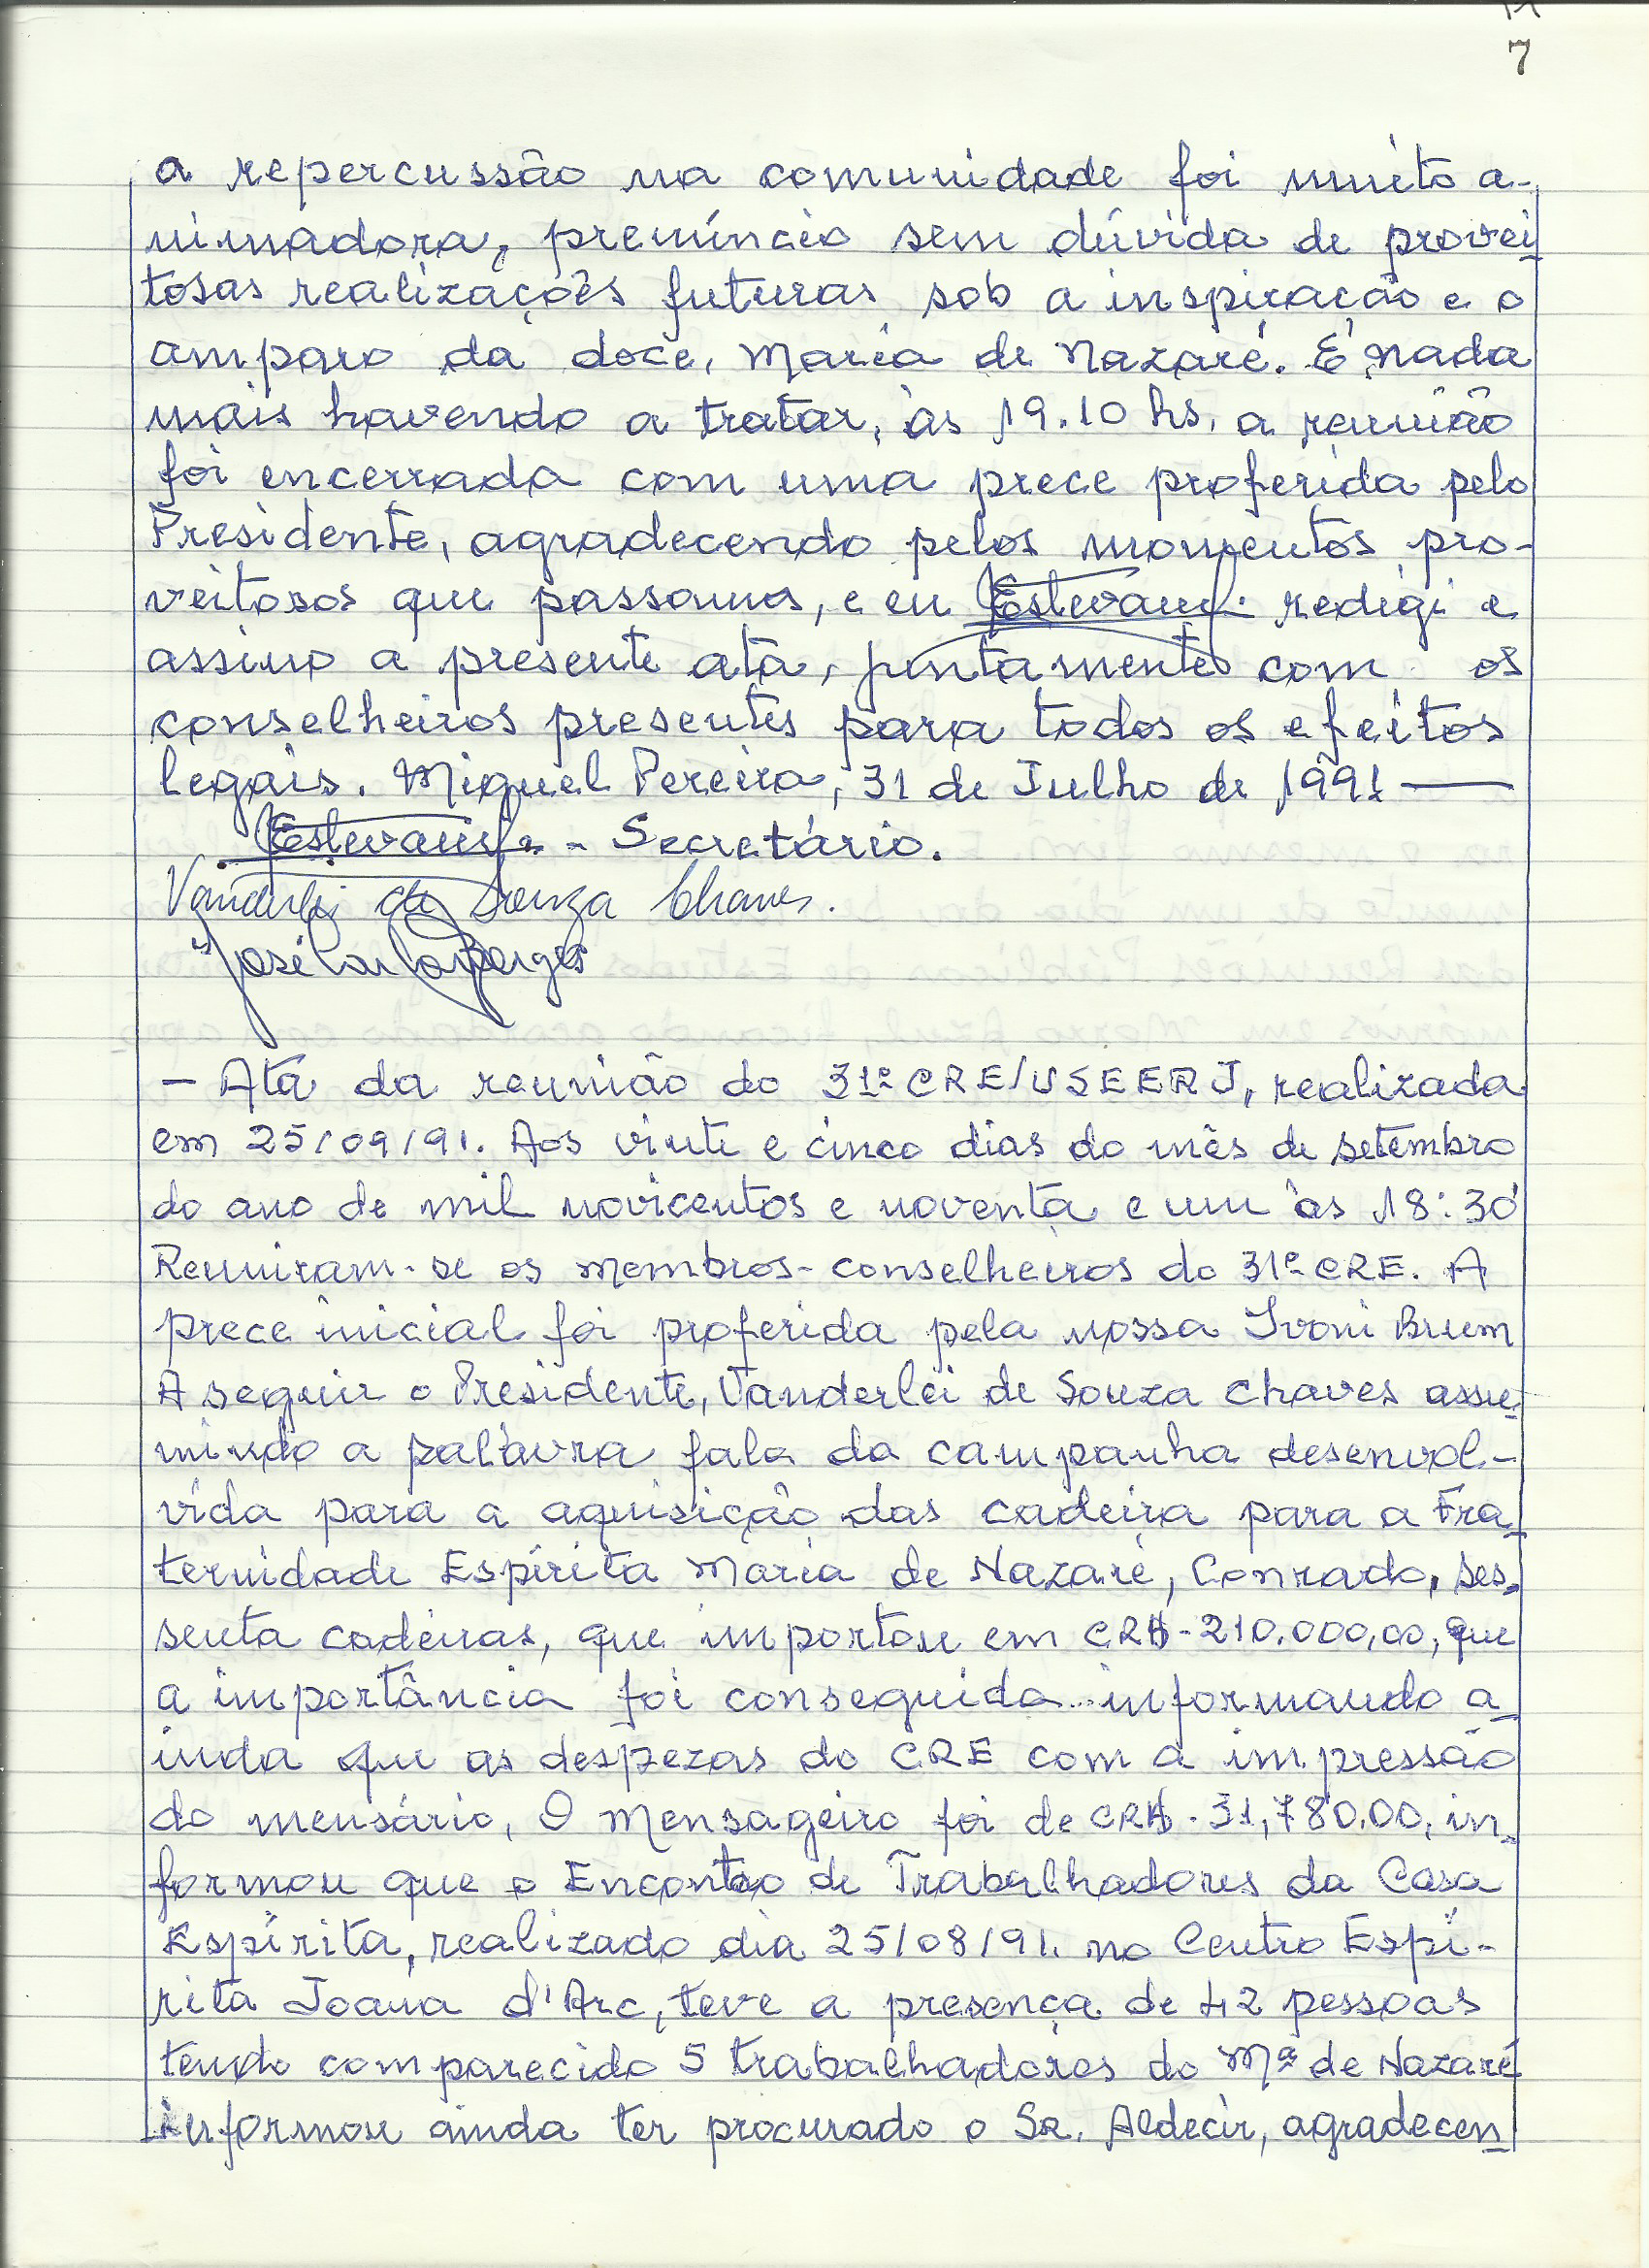 7
a repercussão na comunidade foi muito a-
nimadora, prenúncio sem dúvida de provei
tosas realizações futuras sob a inspiração e o
amparo da doce, Maria de Nazaré. E nada
mais havendo a tratar, às 19.10 hs, a reunião
foi encerrada com uma prece proferida pelo
Presidente, agradecendo pelos momentos pro-
veitosos que passamos, e eu redigi e
assino a presente ata, juntamente com os
conselheiros presentes para todos os efeitos
legais. Miguel Pereira, 31 de Julho de 1991 —
- Secretário.
Vanderlei de Souza Chaves.
José Carlos Borges
- Ata da reunião do 31º CRE/USEERJ, realizada
em 25/09/91. Aos vinte e cinco dias do mês de setembro
do ano de mil novicentos e noventa e um às 18:30
Reuniram-se os membros-conselheiros do 31º CRE. A
prece inicial foi proferida pela nossa Ivoni Brum
A seguir o Presidente, Vanderlei de Souza Chaves assu-
mindo a palavra fala da campanha desenvol-
vida para a aquisição das cadeira para a Fra-
ternidade Espírita Maria de Nazaré, Conrado, ses-
senta cadeiras, que importou em CR$-210.000,00, que
a importância foi conseguida...informando a-
inda qu as despezas do CRE com a impressão
do mensário, O Mensageiro foi de CR$-31,780.00, in-
formou que o Encontro de Trabalhadores da Casa
Espírita, realizado dia 25/08/91. no Centro Espí-
rita Joana d'Arc, teve a presença de 42 pessoas
tendo comparecido 5 trabalhadores do Mª de Nazaré
informou ainda ter procurado o Sr. Aldecir, agradecen-